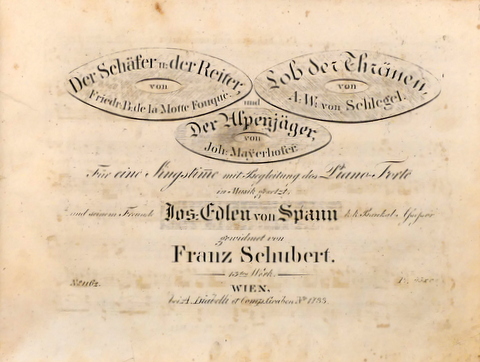 Der Schäfer u: der Reiter,
von
Friedr. B. de la Motte Fouqué.
Lob der Thränen,
von
A. W: von Schlegel.
und
Der Alpenjäger,
von
Joh: Mayerhofer.
Für eine Singstime mit Begleitung des Piano-Forte
in Musik gesetzt,
und seinem Freunde Jos: Edlen von Spaun
gewidmet von
Franz Schubert.
13tes Werk.
WIEN,
bei A. Diabelli et Comp. Graben No 1133.